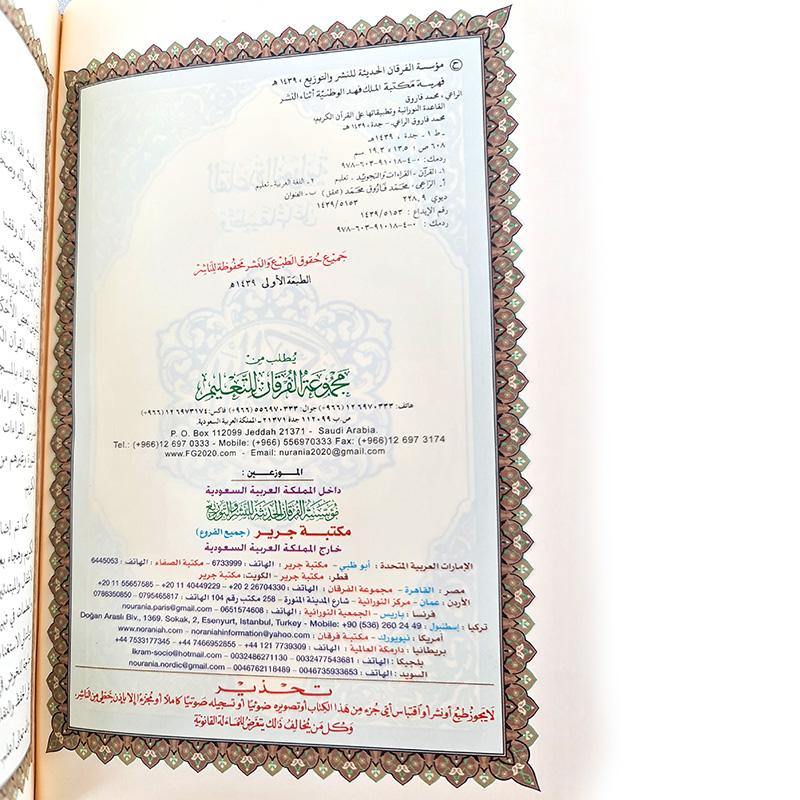 ح مؤسسة الفرقان الحديثة للنشر والتوزيع ، ١٤٣٩ هـ
فهرسة مكتبة الملك فهد الوطنية أثناء النشر
الراعي ، محمد فاروق
القاعدة النورانية وتطبيقاتها على القرآن الكريم
محمد فاروق الراعي .- جدة ، ١٤٣٩ هـ
.- ط ١ .- جدة ، ١٤٣٩ هـ
٦٠٨ ص ؛ ١٣,٥ × ١٩,٣ سم
ردمك : ٠-٤-٩١٠١٨-٦٠٣-٩٧٨
١- القرآن - القراءات والتجويد - تعليم ٢- اللغة العربية - تعليم
أ. الراعي ، محمد فاروق محمد (محقق) ب- العنوان
ديوي ٢٢٨,٩ ١٤٣٩/٥١٥٣
رقم الإيداع : ١٤٣٩/٥١٥٣
ردمك : ٠-٤-٩١٠١٨-٦٠٣-٩٧٨
جميع حقوق الطبع والنشر محفوظة للناشر
الطبعة الأولى ١٤٣٩ هـ
يطلب من
مجموعة الفرقان للتعليم
هاتف: ٦٩٧٠٣٣٣ ١٢ (٩٦٦+) جوال: ٥٥٦٩٧٠٣٣٣ (٩٦٦+) فاكس: ٦٩٧٣١٧٤ ١٢ (٩٦٦+)
ص.ب ١١٢٠٩٩ جدة ٢١٣٧١ - المملكة العربية السعودية.
P. O. Box 112099 Jeddah 21371 - Saudi Arabia.
Tel.: (+966)12 697 0333 - Mobile: (+966) 556970333 Fax: (+966)12 697 3174
www.FG2020.com - Email: nurania2020@gmail.com
الموزعين :
داخل المملكة العربية السعودية
مؤسسة الفرقان الحديثة للنشر والتوزيع
مكتبة جرير (جميع الفروع)
خارج المملكة العربية السعودية
الإمارات العربية المتحدة : أبو ظبي - مكتبة جرير : الهاتف : 6733999 - مكتبة الصفاء : الهاتف : 6445053
قطر: مكتبة جرير - الكويت: مكتبة جرير
مصر : القاهرة - مجموعة الفرقان : الهاتف : 26704330 2 20+ - 40449229 11 20+ - 55657585 11 20+
الأردن : عمان - مركز النورانية - شارع المدينة المنورة - 258 مكتب رقم 104 الهاتف : 0795465817 - 0786350850
فرنسا : باريس - الجمعية النورانية : الهاتف : 0651574608 - nourania.paris@gmail.com
تركيا : إسطنبول - Doğan Araslı Blv., 1369. Sokak, 2, Esenyurt, Istanbul, Turkey - Mobile: +90 (536) 260 24 49
أمريكا : نيويورك - مكتبة فرقان : www.noraniah.com - noraniahinformation@yahoo.com
بريطانيا - دارمكة العالمية : الهاتف : 7739309 121 44+ - 7466952855 44+ - 7533177345 44+
بلجيكا : الهاتف : 0032477543681 - 0032486271130 - Ikram-socio@hotmail.com
السويد : الهاتف : 0046735933653 - 0046762118489 - nourania.nordic@gmail.com
تحذير
لا يجوز طبع أو نشر أو اقتباس أي جزء من هذا الكتاب أو تصويره ضوئيا أو تسجيله صوتيا كاملا أو مجزءا إلا بإذن خطي من الناشر،
وكل من يخالف ذلك يتعرض للمساءلة القانونية